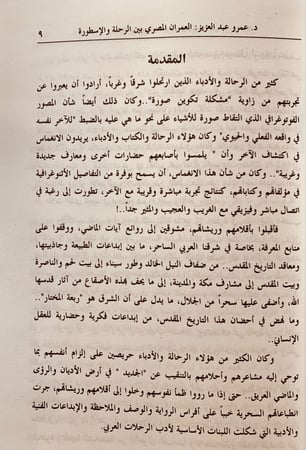 د. عمرو عبد العزيز: العمران المصري بين الرحلة والإسطورة ٩
المقدمة
كثير من الرحالة والأدباء الذين ارتحلوا شرقاً وغرباً، أرادوا أن يعبروا عن
تجربتهم من زاوية "مشكلة تكوين صورة"..وكان ذلك أيضاً شأن المصور
الفوتوغرافي الذي التقاط صورة للأشياء على نحو ما هي عليه بالضبط "للآخر نفسه
في واقعه الفعلي والحيوي" وكان هؤلاء الرحالة والكتاب والأدباء، يريدون الانغماس
في اكتشاف الآخر وأن " يلمسوا بأصابعهم حضارات أخرى ومعارف جديدة
وغريبة".. وكان من شأن هذا الانغماس، أن يسمح بوفرة من التفاصيل الأنوغرافية
في مؤلفاتهم وكتاباتهم، كنتائج تجربة مباشرة وقريبة مع الآخر، تطورت إلى رغبة في
اتصال مباشر وفيزيقي مع الغريب والعجيب والمثير جداً..!
فأقبلوا بأقلامهم وريشاهم، مشوقين إلى روائع آيات الماضي، ووقفوا على
منابع المعرفة، بخاصة في شرقنا العربي الساحر، ما بين إبداعات الطبيعة وجاذبيتها،
ومعاقد التاريخ المقدس.. من ضفاف النيل الخالد وطور سيناء إلى بيت لحم والناصرة
وبيت المقدس إلى مشارف مكة والمدينة، إلى ما يحف هذه الأصقاع من آثار قدسها
الله، وأضفي عليها سحراً من الجلال، ما يدل على أن الشرق هو "ربعة المختار"..
وما نهض في أحضان هذا التاريخ المقدس، من إبداعات فكرية وحضارية للعقل
الإنساني..
وكان الكثير من هؤلاء الرحالة والأدباء حريصين على إلزام أنفسهم بما
توحي إليه مشاعرهم وأحلامهم بالتنقيب عن "الجديد " في أرض الأديان والرؤى
والماضي العريق.. حتى إذا ما رووا ظمأ نفوسهم وخلوا إلى أقلامهم وريشاهم، جرت
انطباعاتهم السحرية خبباً على أفراس الرواية والوصف والملاحظة والإبداعات الفنية
والأدبية التي شكلت اللبنات الأساسية لأدب الرحلات العربي.